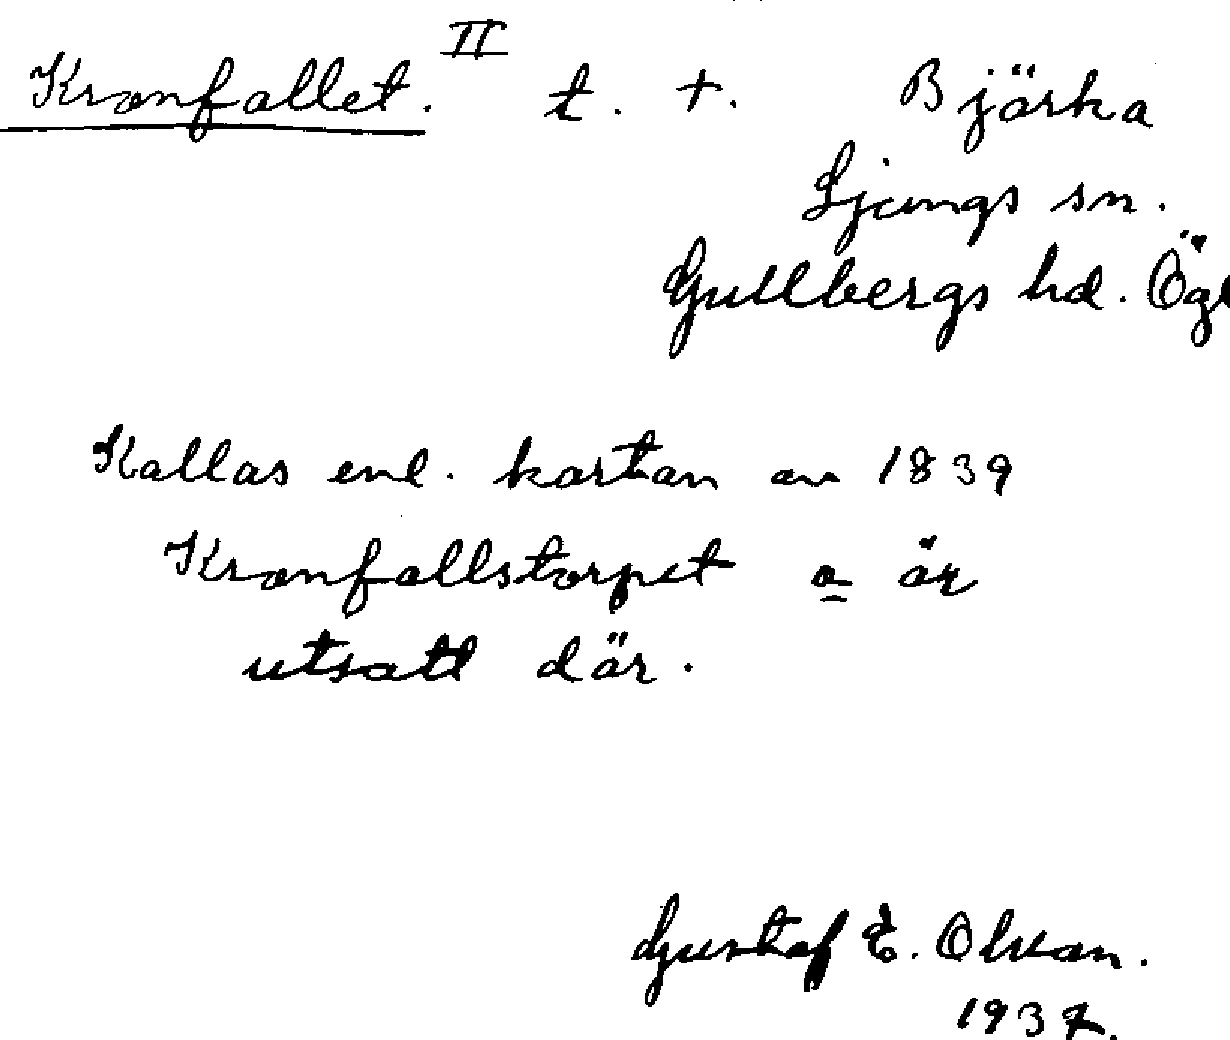 Kranfallet. II t. +. Bjärka
Ljungs sn.
Gullbergs hd. Ögl
Kallas enl. kartan av 1839
Kranfallstorpet o är
utsatt där.
Gustaf E. Olsson.
1937.